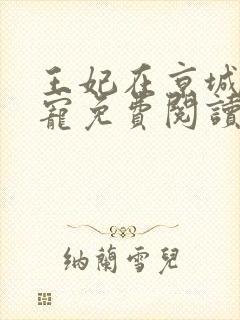 王妃在京城
寵免費閱讀
納蘭雪兒